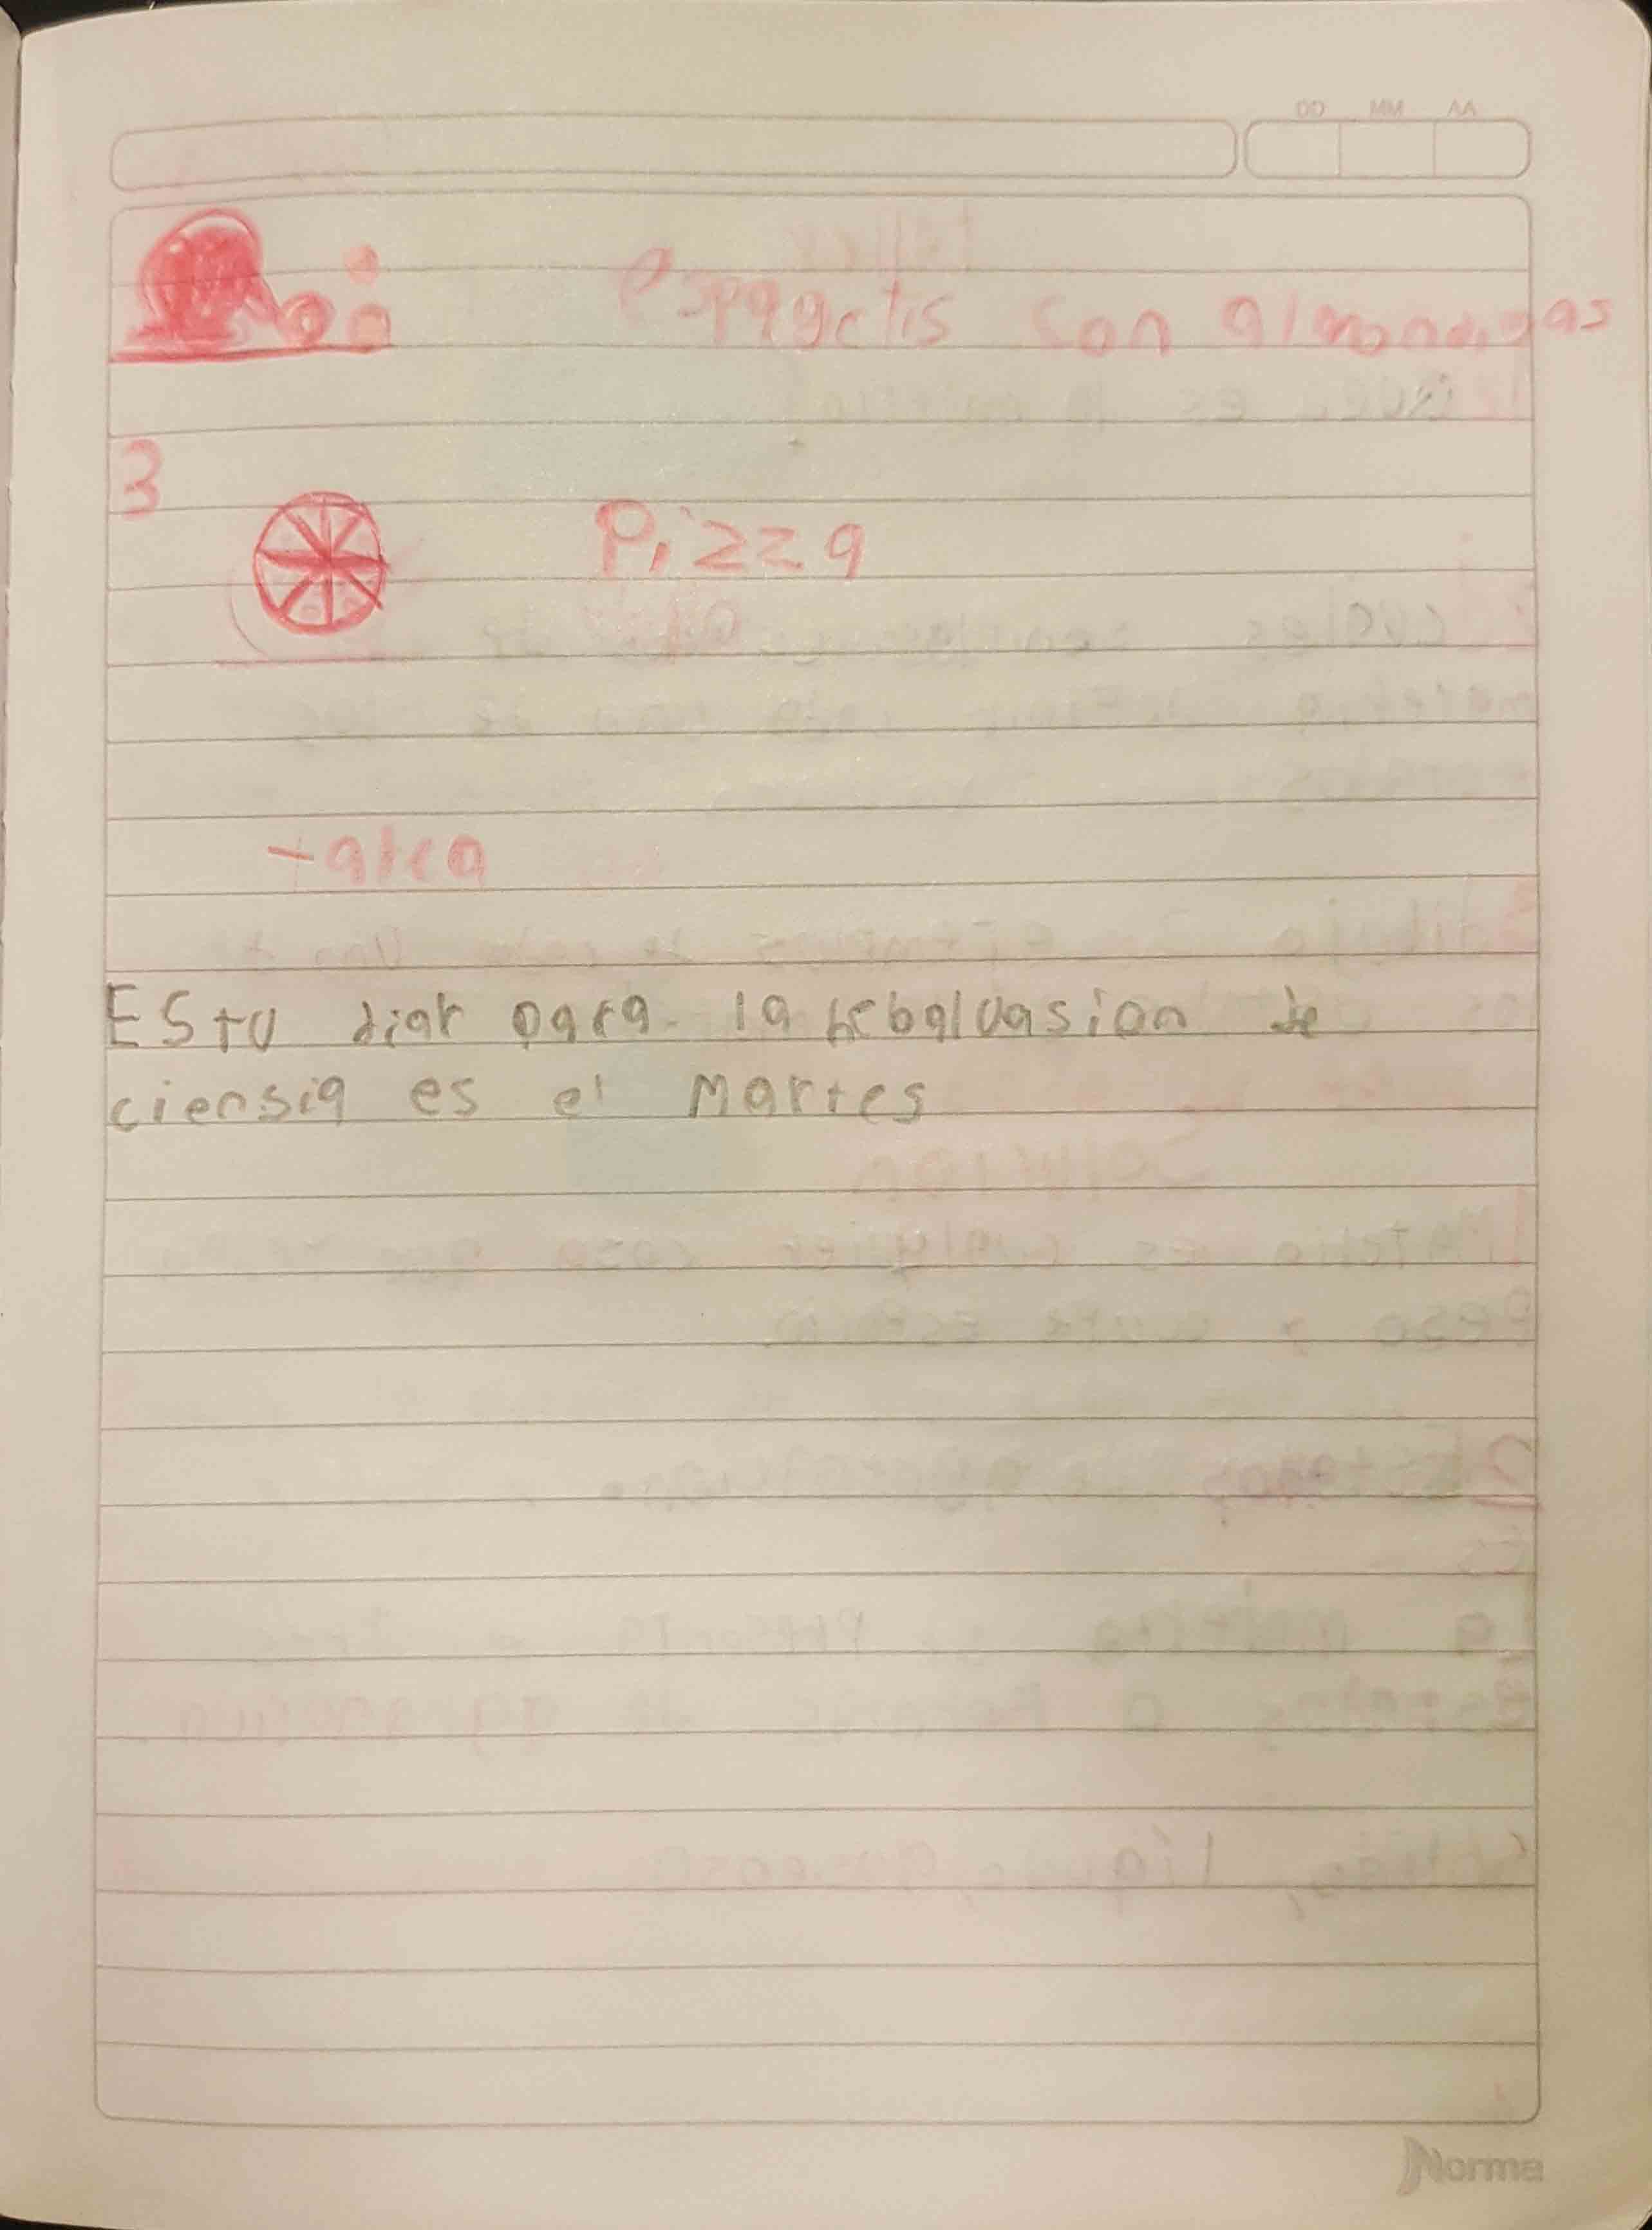 espagetis son almondigas
3
Pizza
tarea
EStu diar para la hebaluasion de
ciensia es el Martes
Norma